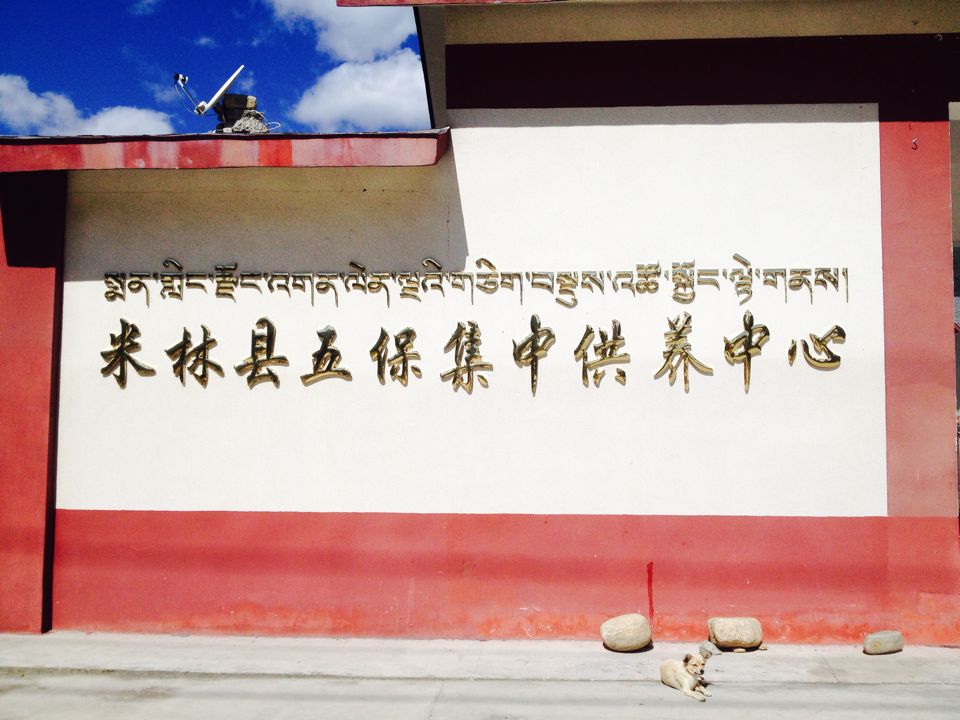 སྨན་གླིང་རྫོང་འགན་ལེན་ལྔའི་གཅིག་བསྡུས་འཚོ་སྐྱོང་ལྟེ་གནས།
米林县五保集中供养中心